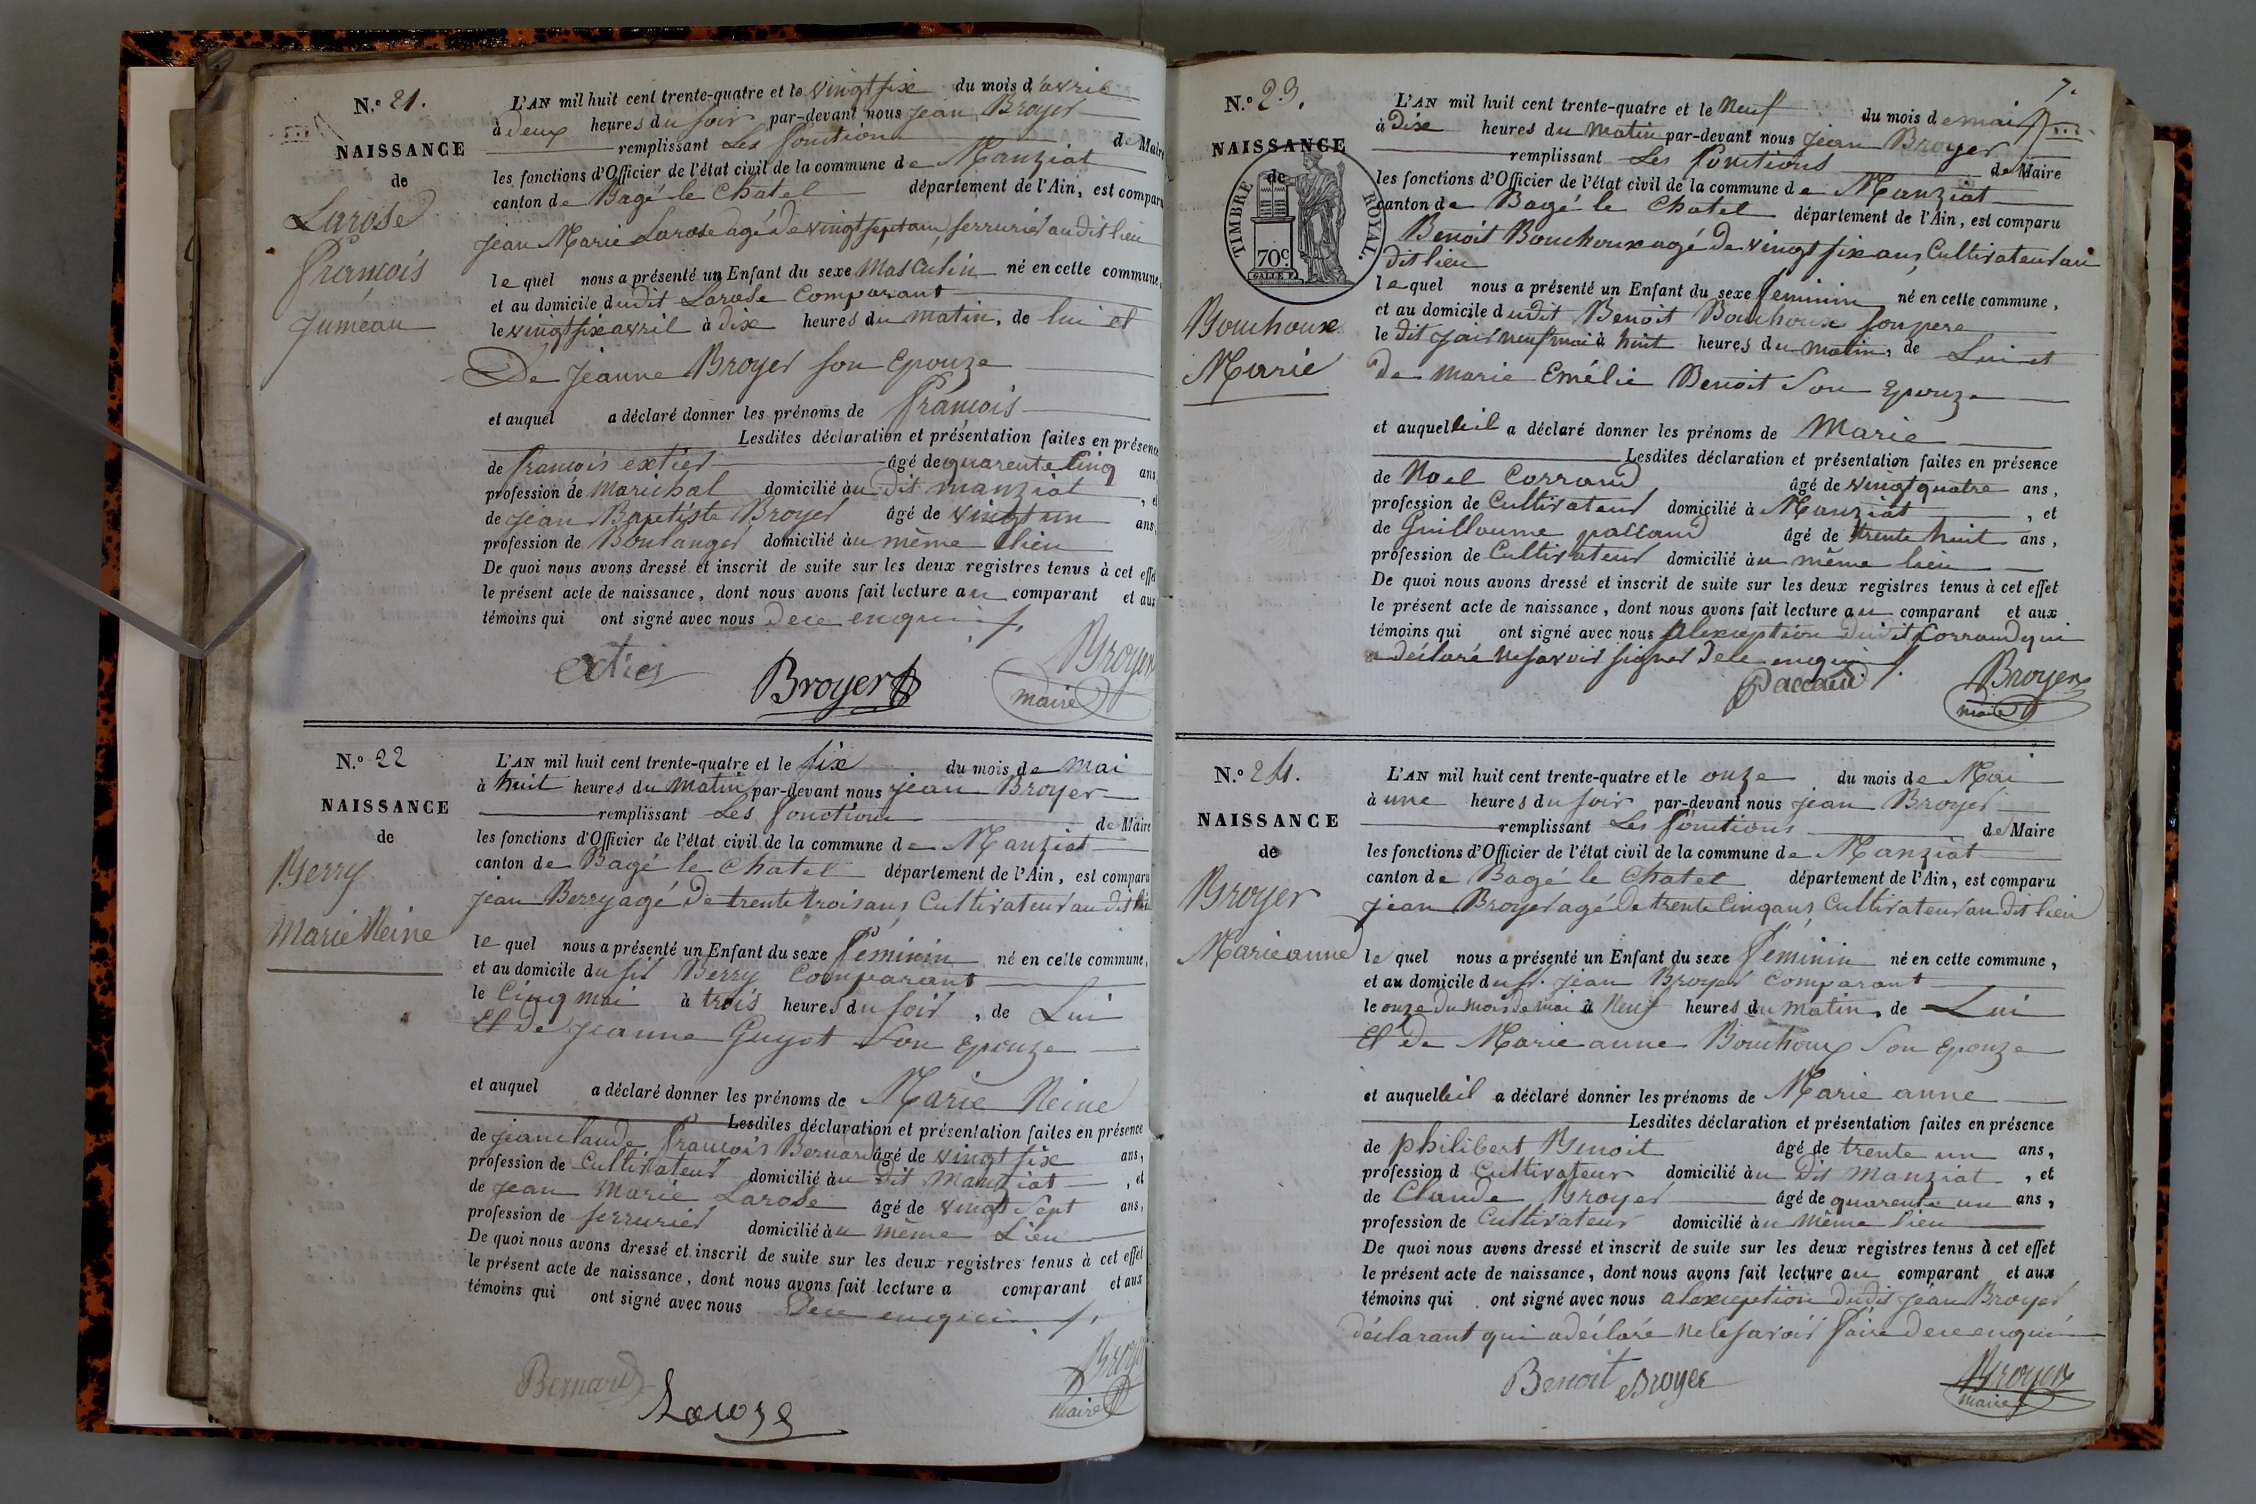 N.° 21.
NAISSANCE
de
Larose
François
Jumeau
L'AN mil huit cent trente-quatre et le vingt six du mois d'avril
à deux heures du soir par-devant nous jean Broyer
remplissant Les fonctions de Maire
les fonctions d'Officier de l'état civil de la commune de Manziat
canton de Bagé le Chatel département de l'Ain, est comparu
jean Marie Larose agé de vingt sept ans, serrurier au dit lieu
le quel nous a présenté un Enfant du sexe Masculin né en cette commune,
et au domicile dudit Larose Comparant
le vingt six avril à dix heures du matin, de lui et
De Jeanne Broyer son Epouze
et auquel a déclaré donner les prénoms de François
Lesdites déclaration et présentation faites en présence
de François extier âgé de quarente Cinq ans,
profession de marichal domicilié au dit manziat, et
de jean Baptiste Broyer âgé de vingt un ans,
profession de Boulanger domicilié au même lieu
De quoi nous avons dressé et inscrit de suite sur les deux registres tenus à cet effet
le présent acte de naissance, dont nous avons fait lecture au comparant et aux
témoins qui ont signé avec nous de ce enquis
extier
Broyer
Broyer
maire
N.° 22
NAISSANCE
de
Berry
Marie Reine
L'AN mil huit cent trente-quatre et le six du mois de mai
à huit heures du Matin par-devant nous jean Broyer
remplissant Les fonctions de Maire
les fonctions d'Officier de l'état civil de la commune de Manziat
canton de Bagé le Chatel département de l'Ain, est comparu
jean Berry agé de trente trois ans, Cultivateur au dit lieu
le quel nous a présenté un Enfant du sexe Féminin né en cette commune,
et au domicile du sit Berry Comparant
le Cinq mai à trois heures du soir, de Lui
Et de Jeanne Guyot Son Epouze
et auquel a déclaré donner les prénoms de Marie Reine
Lesdites déclaration et présentation faites en présence
de jeanclaude François Bernard âgé de vingt six ans,
profession de Cultivateur domicilié au dit Manziat, et
de Jean Marie Larose âgé de vingt Sept ans,
profession de serrurier domicilié au même Lieu
De quoi nous avons dressé et inscrit de suite sur les deux registres tenus à cet effet
le présent acte de naissance, dont nous avons fait lecture a comparant et aux
témoins qui ont signé avec nous De ce enquis
Bernard
Laroze
Broyer
Maire
7.
N.° 23.
NAISSANCE
de
TIMBRE ROYAL.
70c.
Bouchoux
Marie
L'AN mil huit cent trente-quatre et le neuf du mois de mai
à Dix heures du Matin par-devant nous jean Broyer
remplissant Les fonctions de Maire
les fonctions d'Officier de l'état civil de la commune de Manziat
canton de Bagé le Chatel département de l'Ain, est comparu
Benoit Bouchoux agé de vingt six ans, Cultivateur au
dit lieu
le quel nous a présenté un Enfant du sexe feminin né en cette commune,
et au domicile dudit Benoit Bouchoux son pere
le dit jour neuf mai à huit heures du matin, de Lui et
de Marie Emélie Benoit Son Epouze
et auquelleil a déclaré donner les prénoms de Marie
Lesdites déclaration et présentation faites en présence
de Noel Corrand âgé de vingt quatre ans,
profession de Cultivateur domicilié à Manziat, et
de Guillaume paccaud âgé de trente huit ans,
profession de Cultivateur domicilié au même lieu
De quoi nous avons dressé et inscrit de suite sur les deux registres tenus à cet effet
le présent acte de naissance, dont nous avons fait lecture au comparant et aux
témoins qui ont signé avec nous alexception dudit Corrand qui
a déclaré ne savoir signer de ce enquis
Paccaud
Broyer
maire
N.° 24.
NAISSANCE
de
Broyer
Marie anne
L'AN mil huit cent trente-quatre et le onze du mois de Mai
à une heures du soir par-devant nous jean Broyer
remplissant Les fonctions de Maire
les fonctions d'Officier de l'état civil de la commune de Manziat
canton de Bagé le Chatel département de l'Ain, est comparu
jean Broyer agé de trente Cinq ans, Cultivateur au dit lieu
le quel nous a présenté un Enfant du sexe Féminin né en cette commune,
et au domicile du sr. jean Broyer Comparant
le onze du mois de mai à Neuf heures du Matin, de Lui
Et De Marie anne Bouchoux Son Epouze
et auquelleil a déclaré donner les prénoms de Marie anne
Lesdites déclaration et présentation faites en présence
de philibert Benoit âgé de trente un ans,
profession d Cultivateur domicilié au dit Manziat, et
de Claude Broyer âgé de quarente un ans,
profession de Cultivateur domicilié au même lieu
De quoi nous avons dressé et inscrit de suite sur les deux registres tenus à cet effet
le présent acte de naissance, dont nous avons fait lecture au comparant et aux
témoins qui ont signé avec nous alexception dudit jean Broyer
déclarant qui a déclaré ne le savoir faire de ce enquis
Benoit Broyer
Broyer
Maire